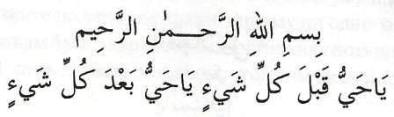 بِسمِ اللهِ الرَّحــمٰنِ الرَّحیمِ
یَاحَيُّ قَبْلَ كُلِّ شَيْءٍ يَاحَيُّ بَعْدَ كُلِّ شَيْءٍ